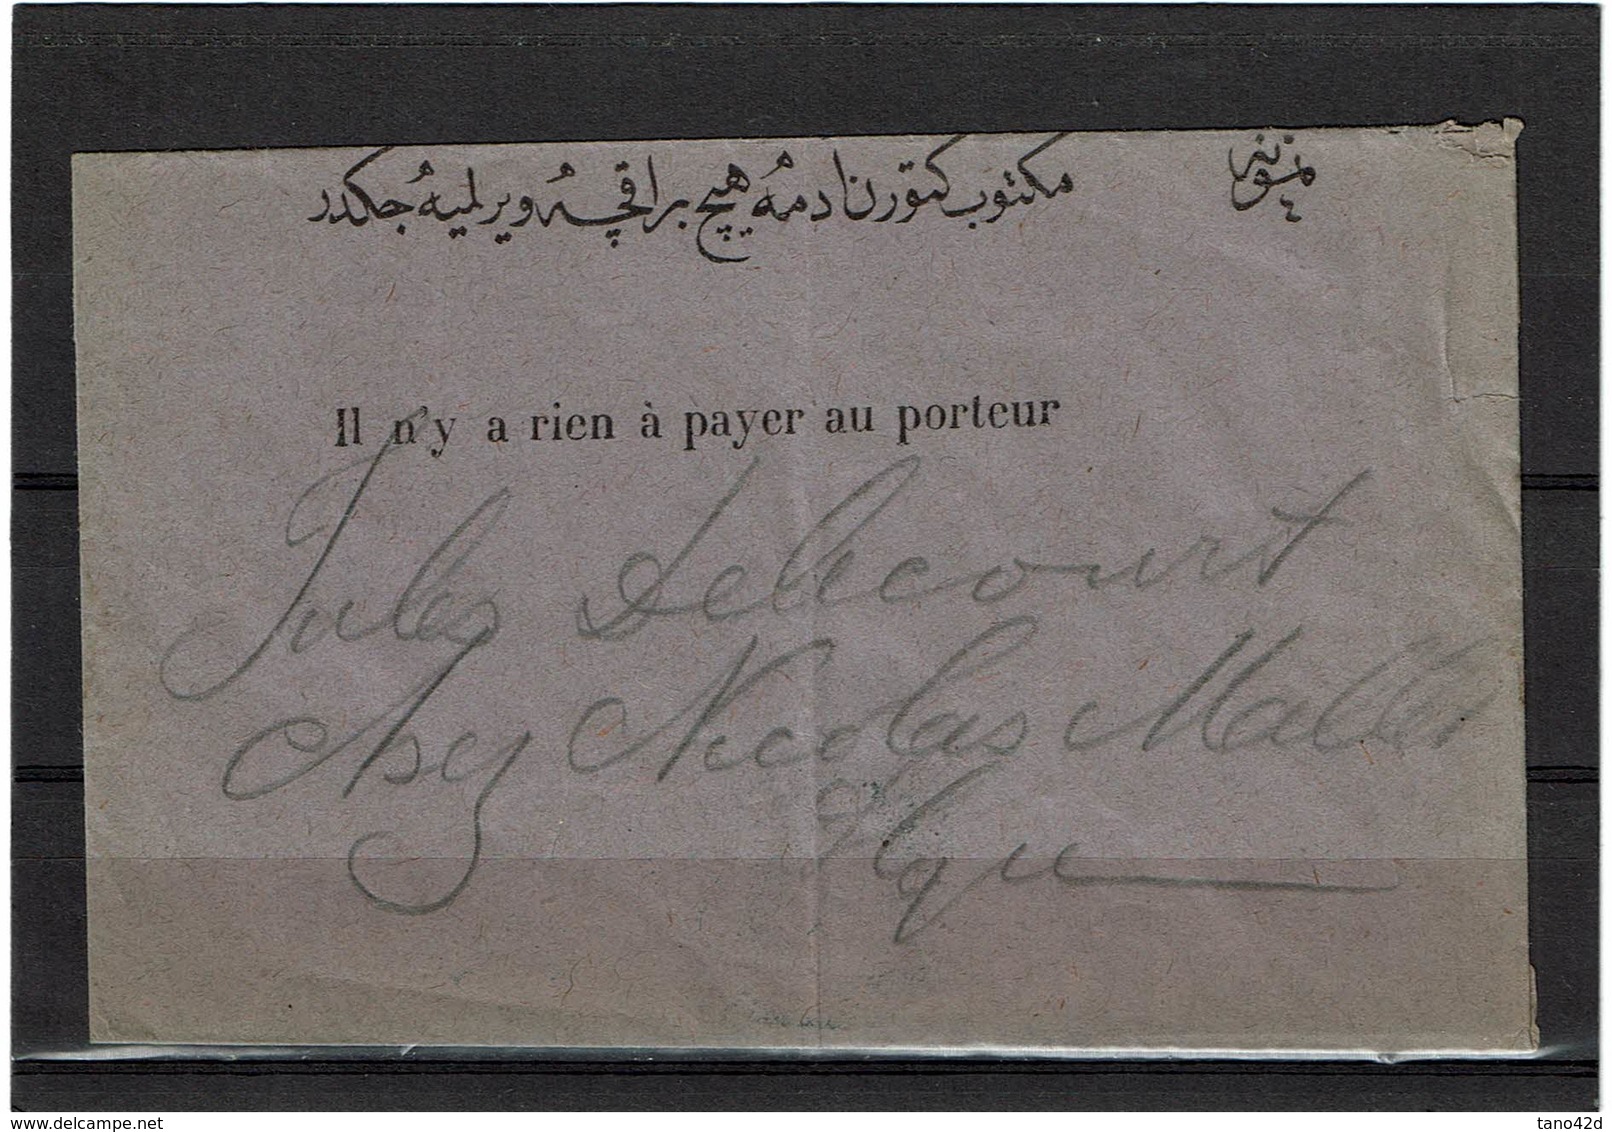 نمونه ٤
مكتوب كتورن ادمه هيچ بر اقچه ويرلميه جكدر
Il n'y a rien à payer au porteur
Jules Delecourt
chez Nicolas Mallet
delcampe.net
tano42d